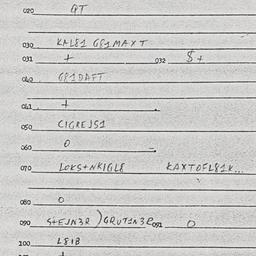 020 GT
030 KAL81 G81MAXT
031 + 032 $+
040 G81DAFT
041 +
050 CIGREJS1
060 0
070 LOKS+NKIGL8 KAXTOFL81K...
080 0
090 S+EJN3R)GRUT1N3R 091 0
100 L81B